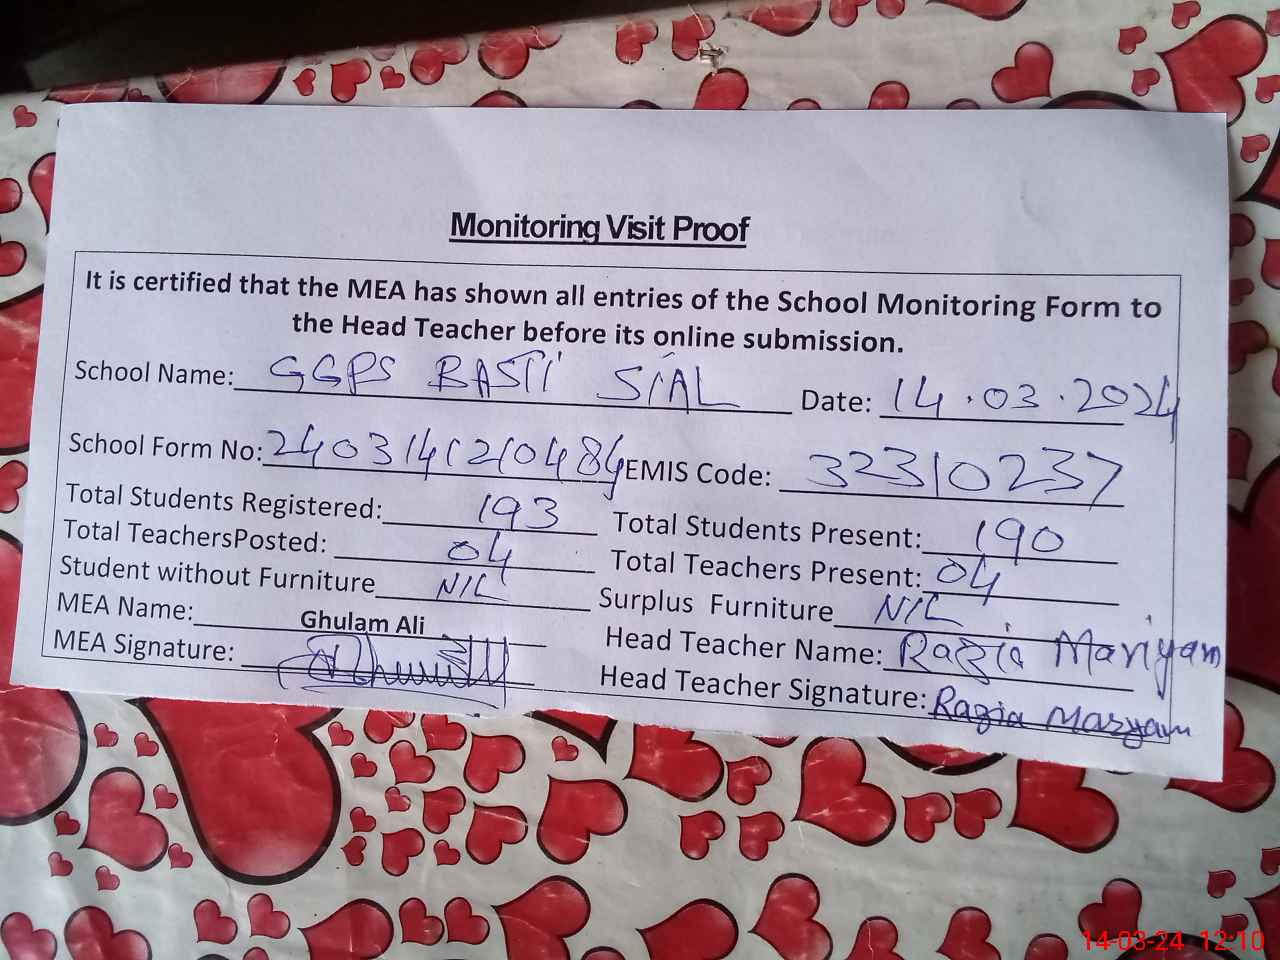 Monitoring Visit Proof
It is certified that the MEA has shown all entries of the School Monitoring Form to
the Head Teacher before its online submission.
School Name: GGPS BASTI SIAL Date: 14.03.2024
School Form No: 2403141210484 EMIS Code: 32310237
Total Students Registered: 193 Total Students Present: 190
Total TeachersPosted: 04 Total Teachers Present: 04
Student without Furniture NIL Surplus Furniture NIL
MEA Name: Ghulam Ali Head Teacher Name: Razia Mariyam
MEA Signature: Head Teacher Signature: Razia Maryam
14-03-24 12:10